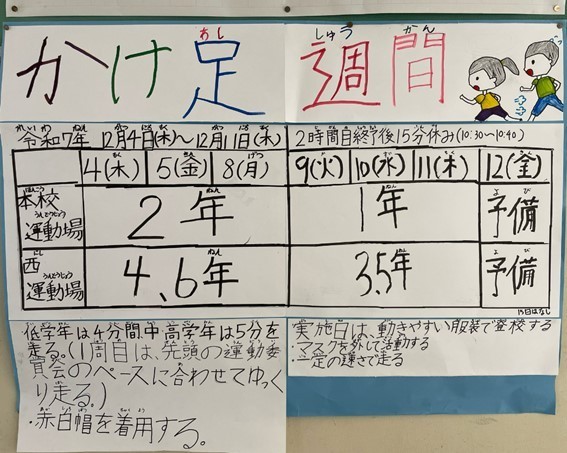 かけ足 週間
令和7年 12月4日(木)～12月11日(木) 2時間目終了後15分休み(10:30～10:40)
4(木) 5(金) 8(月) 9(火) 10(水) 11(木) 12(金)
本校運動場 2年 1年 予備
西運動場 4、6年 3.5年 予備
15日はなし
低学年は4分間、中高学年は5分を
走る。(1周目は、先頭の運動委
員会のペースに合わせてゆっく
り走る。)
・赤白帽を着用する。
実施日は、動きやすい服装で登校する
・マスクを外して活動する
・一定の速さで走る